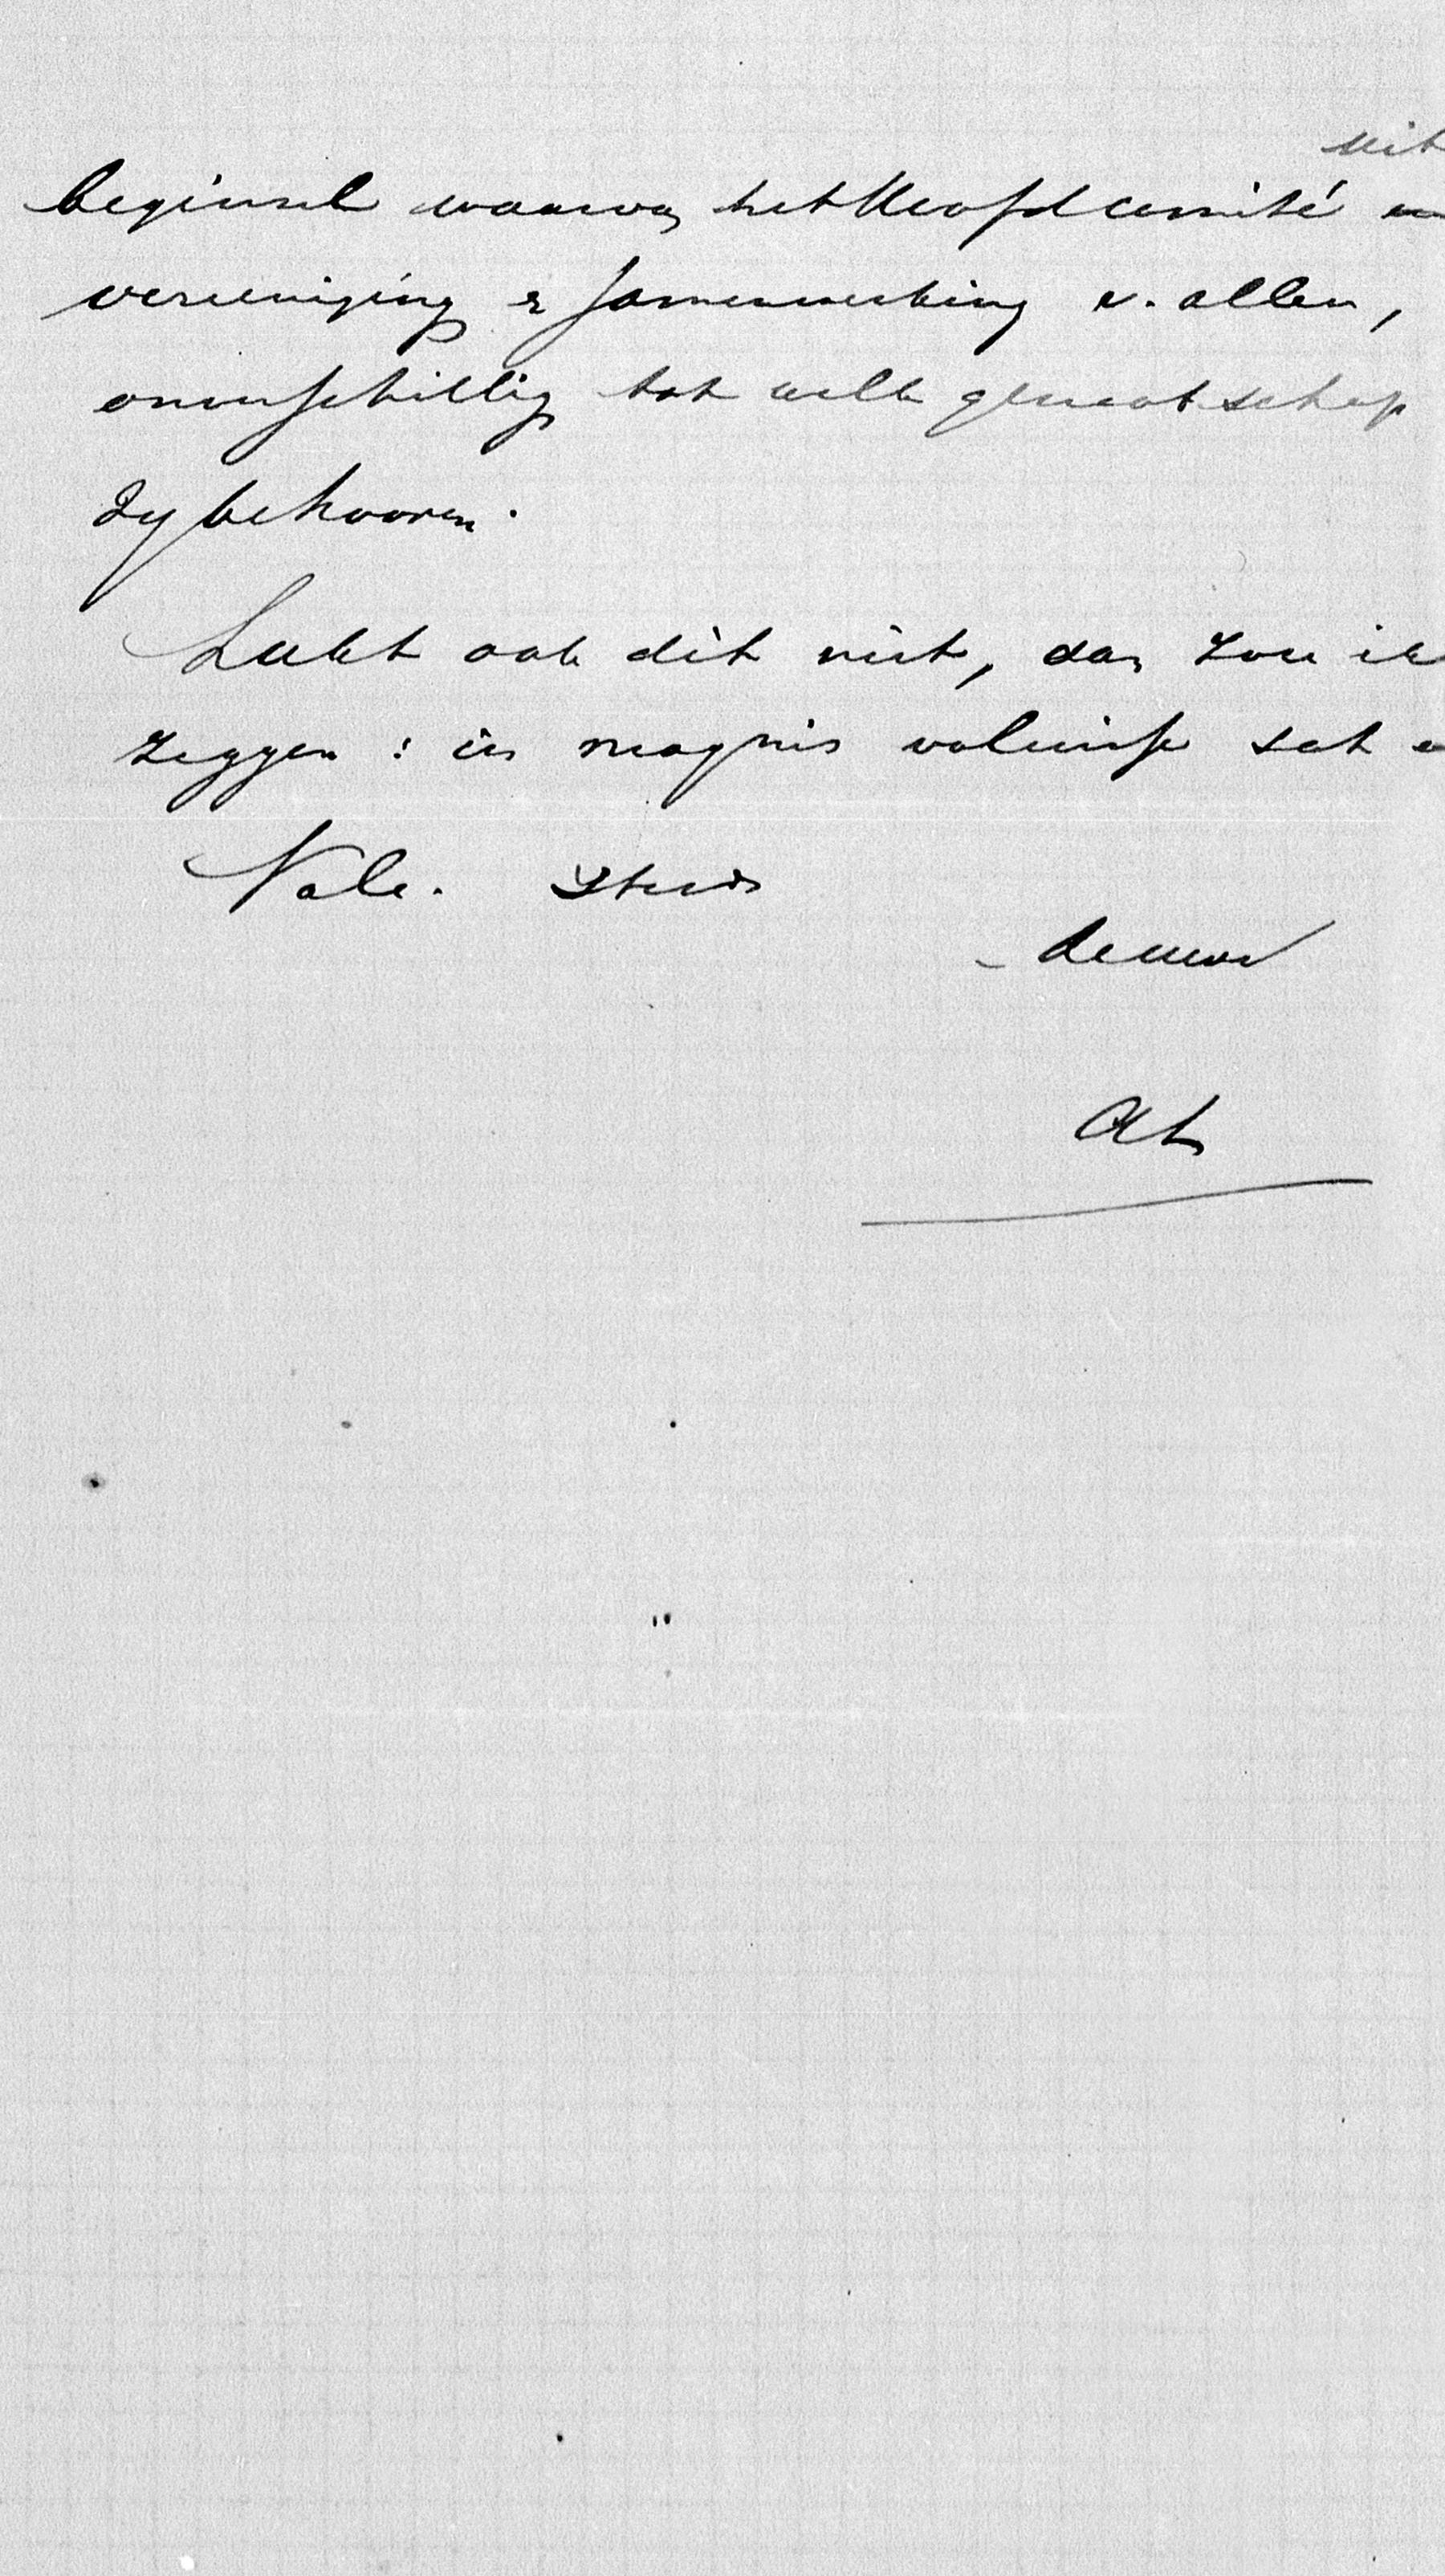 uit
beginsel waarvan het Hoofdcomité
vereeniging & samenwerking v. allen,
onverschillig tot welk genootschap
zy behooren.
Lukt ook dit niet, dan zou ik
zeggen: in magnis voluisse sat e
Vale. Steeds
de uwe